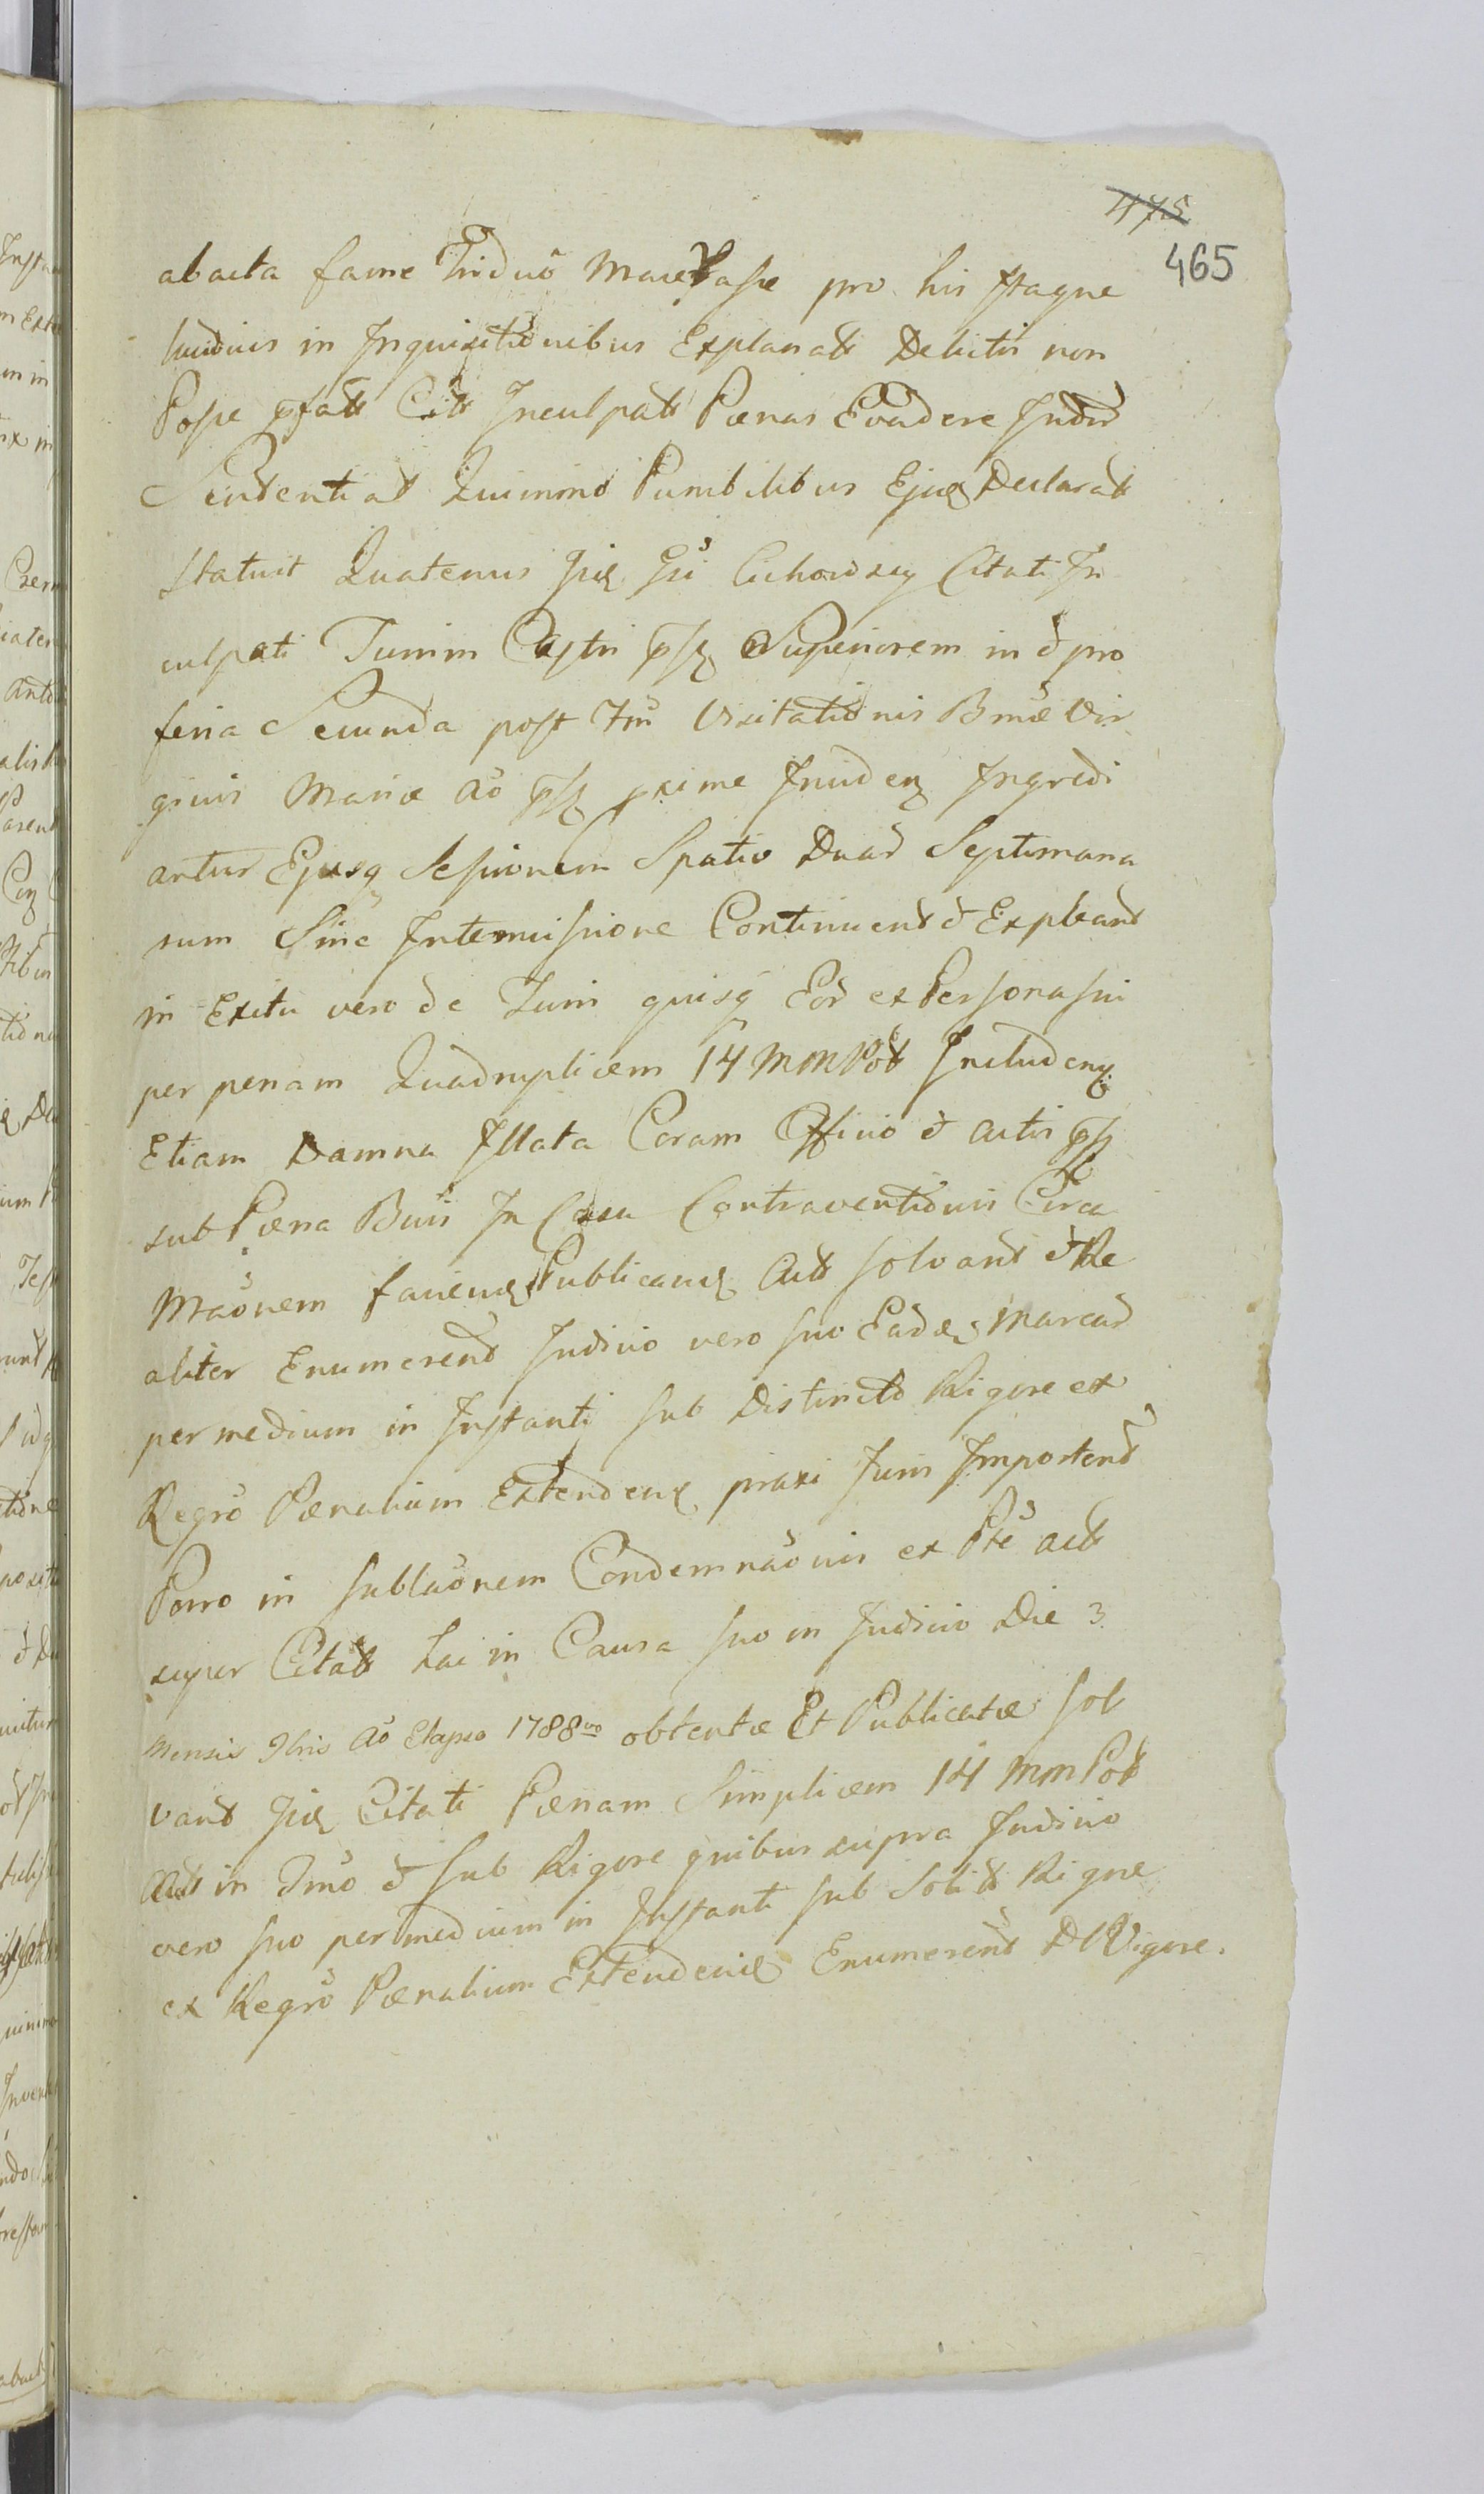 475
465
abacta fame Triduo Macerasse pro his itaque
luridius in Inquisitionibus Explanatt Delictis non
Posse pfatt Citt Inculpatt Paenas Evadere Judm
Sentential Quinimo Punibilibus Ejusq Declaratt
statuit Quatenus Iidq Gsi Cichowscy Citati In
culpati Turrim Castri psq Superiorem in & pro
feria Secunda post Ftm Visitationis Bmae Vir
ginis Mariae Ao psq pxime Inciden Ingredi
antur Ejusq Sessionem Spatio Duar Septimana
rum Sine Intermissione Continuent & Expleant
in Exitu vero de Turri quisq Eor ex Persona sui
per penam Quadruplicem 14 MmPot Includenq
Etiam Damna Illata Coram Officio & actis psq
sub Paena Bnis In Casu Contraventionis Circa
Maonem faciend Publicand Actt solvant & Re
aliter Enumerent Judicio vero suo Eadẽ Marcar
per medium in Instanti sub Distincto Rigore ex
Regro Paenalium Extendend praxi Juris Importent
Porro in sublaonem Condemnaonis ex Pte actt
super Citatt hac in Causa suo in Judicio Die 3
Mensis 9bris Ao Elapso 1788vo obtentae Et Publicatae sol
vant Iidq Citati Paenam Simplicem 14 MmPot
Actt in Tmo & sub Rigore quibus supra Judicio
vero suo per medium in Instanti sub Solitt Rigore
ex Regro Paenalium Extendend Enumerent D Vigore.